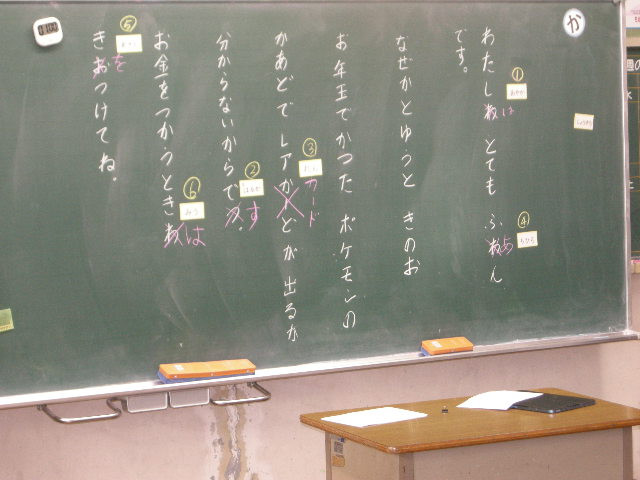 か
わたしは とても ふあん
です。
なぜかとゆうと きのお
お年玉でかつた ポケモンの
かあどで レアカードが 出るか
分からないからです。
お金をつかうときは
きをつけてね。
①
④
③
②
⑥
⑤